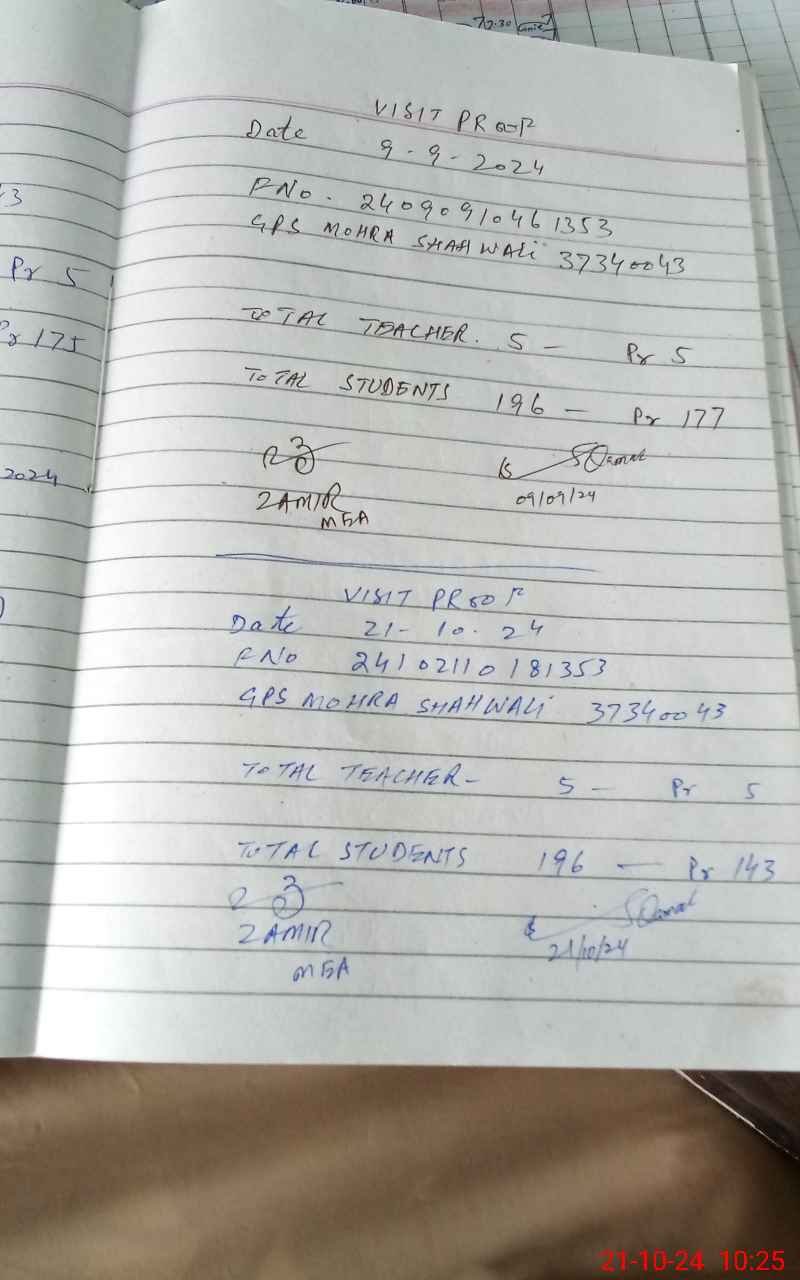 77.30
13
Pr 5
Pr 175
2024
VISIT PROOF
Date 9-9-2024
FNo. 24090910461353
GPS MOHRA SHAHWALi 37340043
TOTAL TEACHER. 5 — Pr 5
TOTAL STUDENTS 196 — Pr 177
ZAMIR
MEA
09/09/24
VISIT PROOF
Date 21-10-24
FNo 24102110181353
GPS MOHRA SHAHWALi 37340043
TOTAL TEACHER— 5 — Pr 5
TOTAL STUDENTS 196 — Pr 143
ZAMIR
MEA
21/10/24
21-10-24 10:25